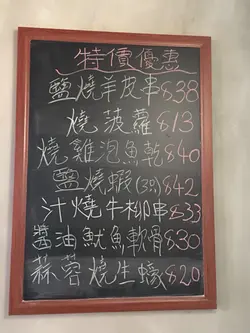 特價優惠
鹽燒羊皮串$38
燒菠蘿$13
燒雞泡魚乾$40
鹽燒蝦(3隻)$42
汁燒牛柳串$33
醬油魷魚軟骨$30
蒜蓉燒生蠔$20